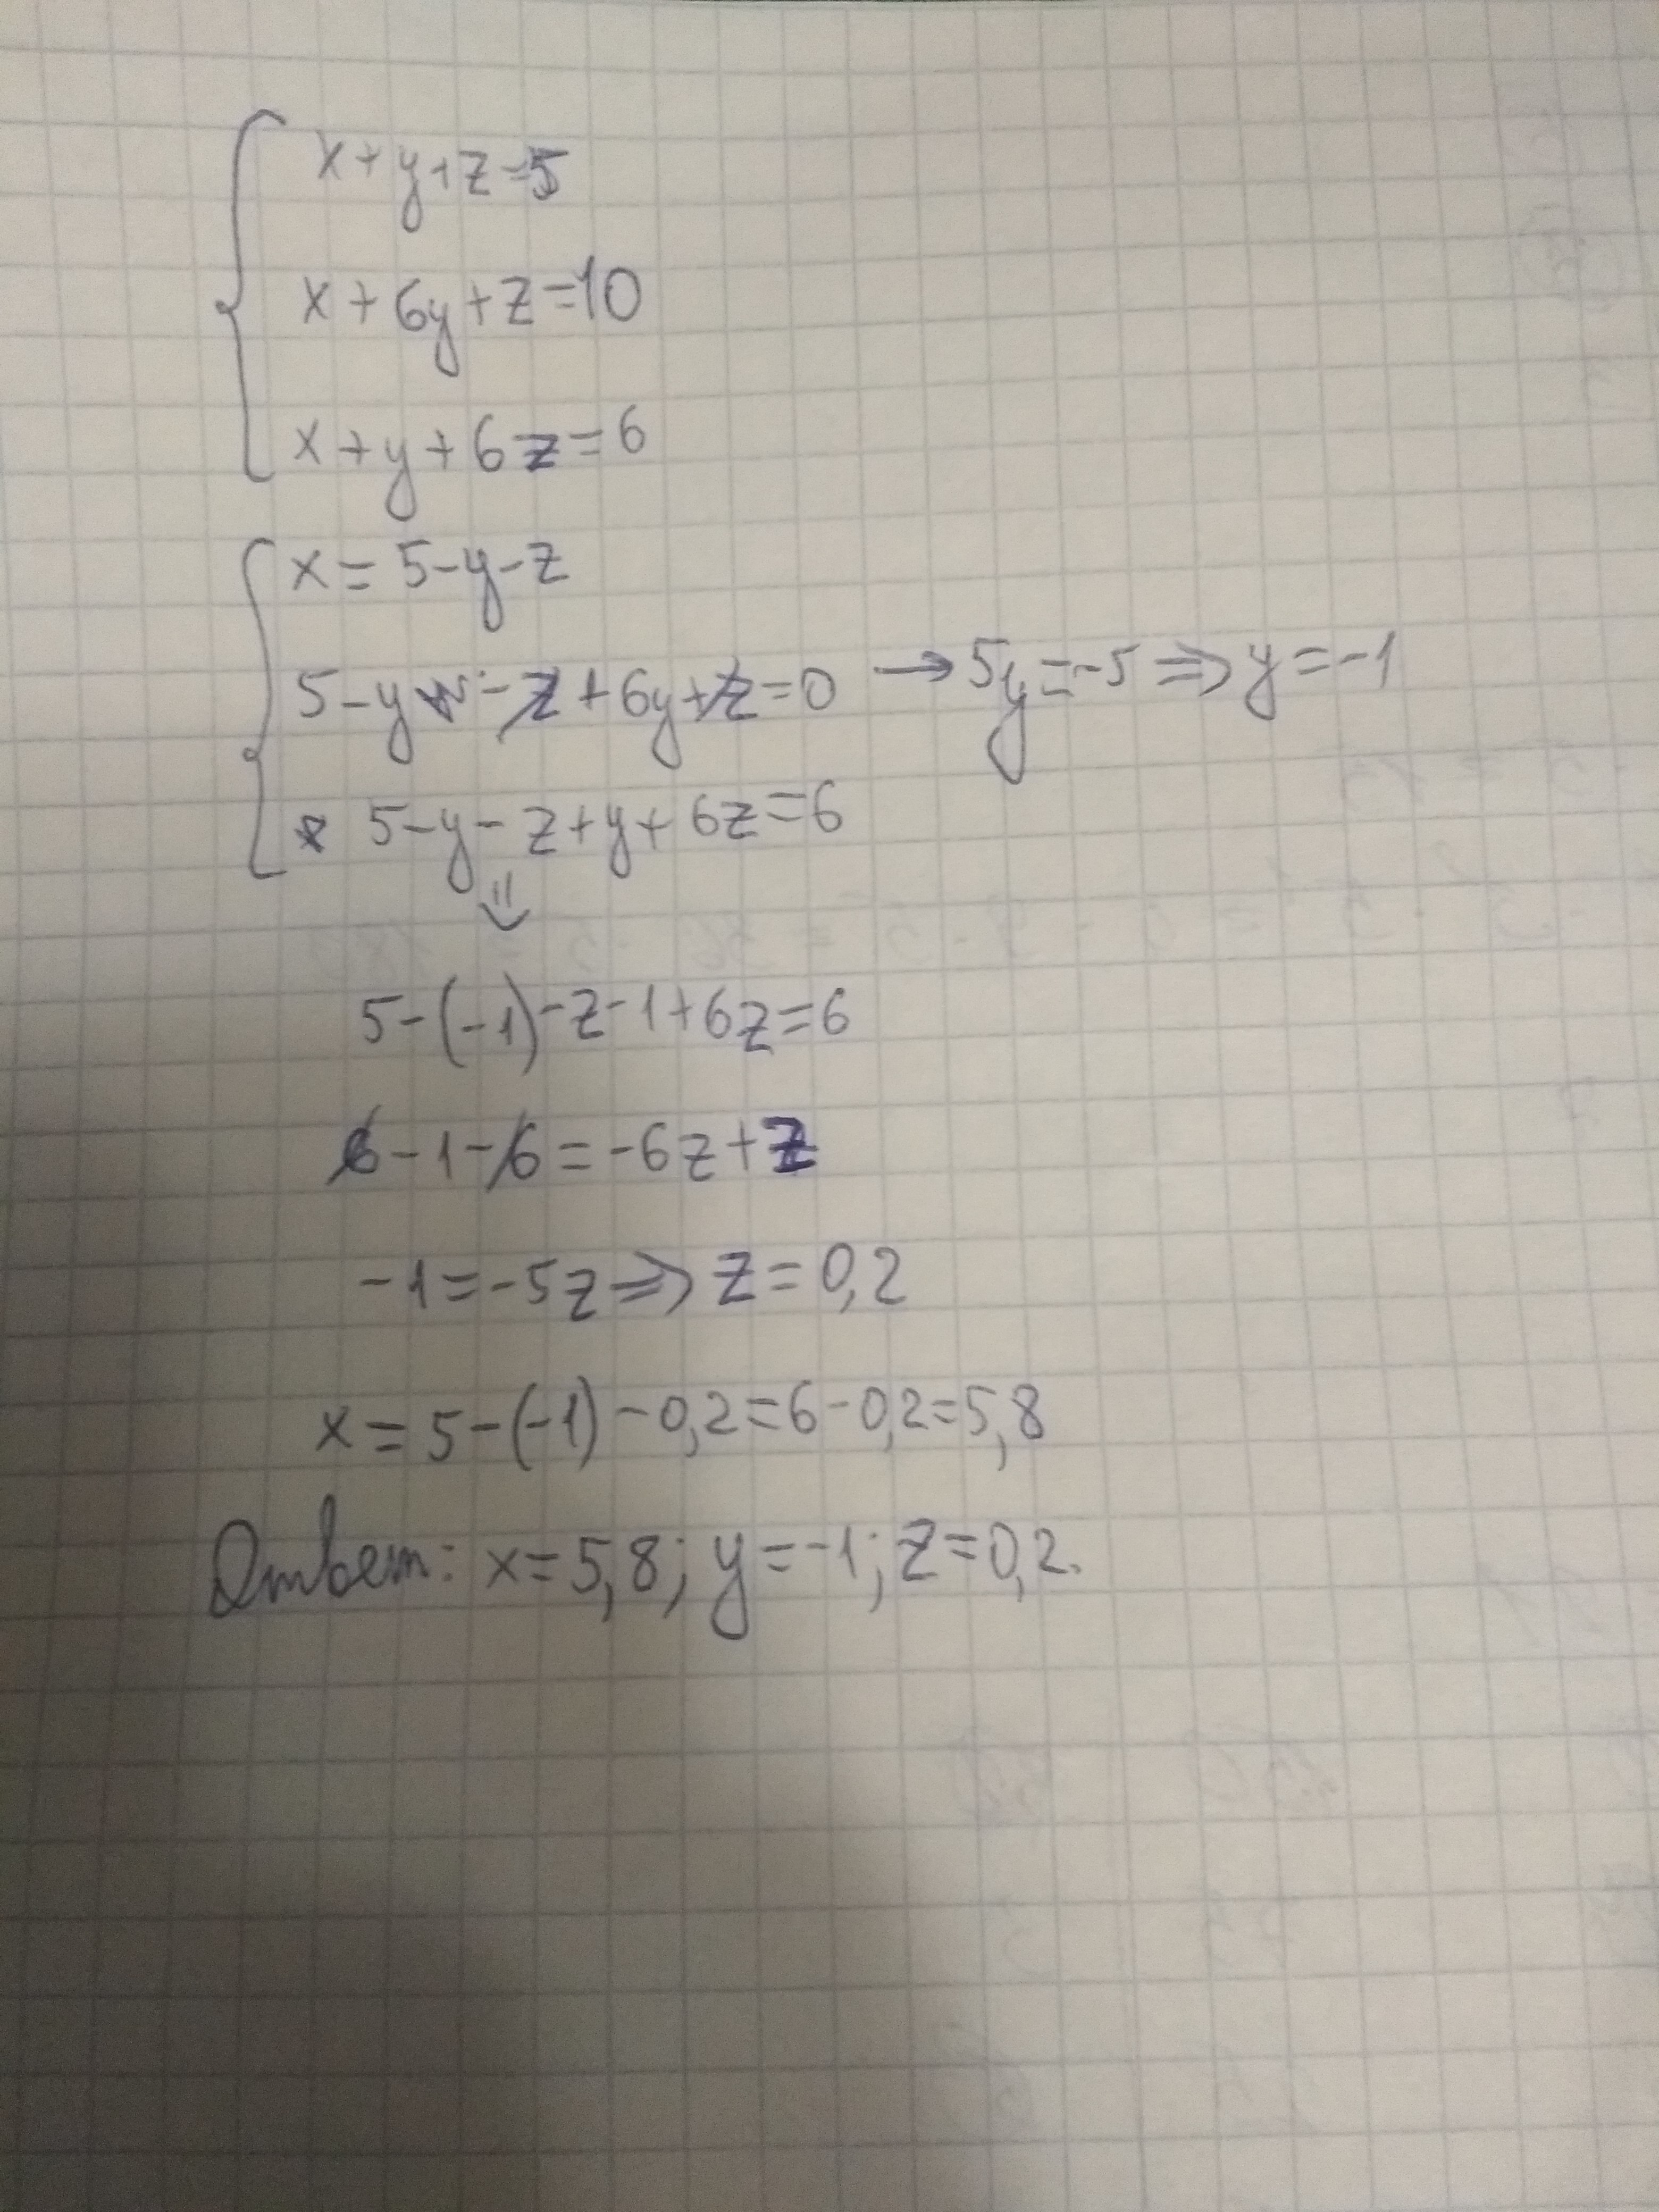 x+y+z=5
x+6y+z=10
x+y+6z=6
x=5-y-z
5-y-z+6y+z=0 → 5y=-5 ⇒ y=-1
5-y-z+y+6z=6
⇓
5-(-1)-z-1+6z=6
6-1-6=-6z+z
-1=-5z ⇒ z=0,2
x=5-(-1)-0,2=6-0,2=5,8
Ответ: x=5,8; y=-1; z=0,2.